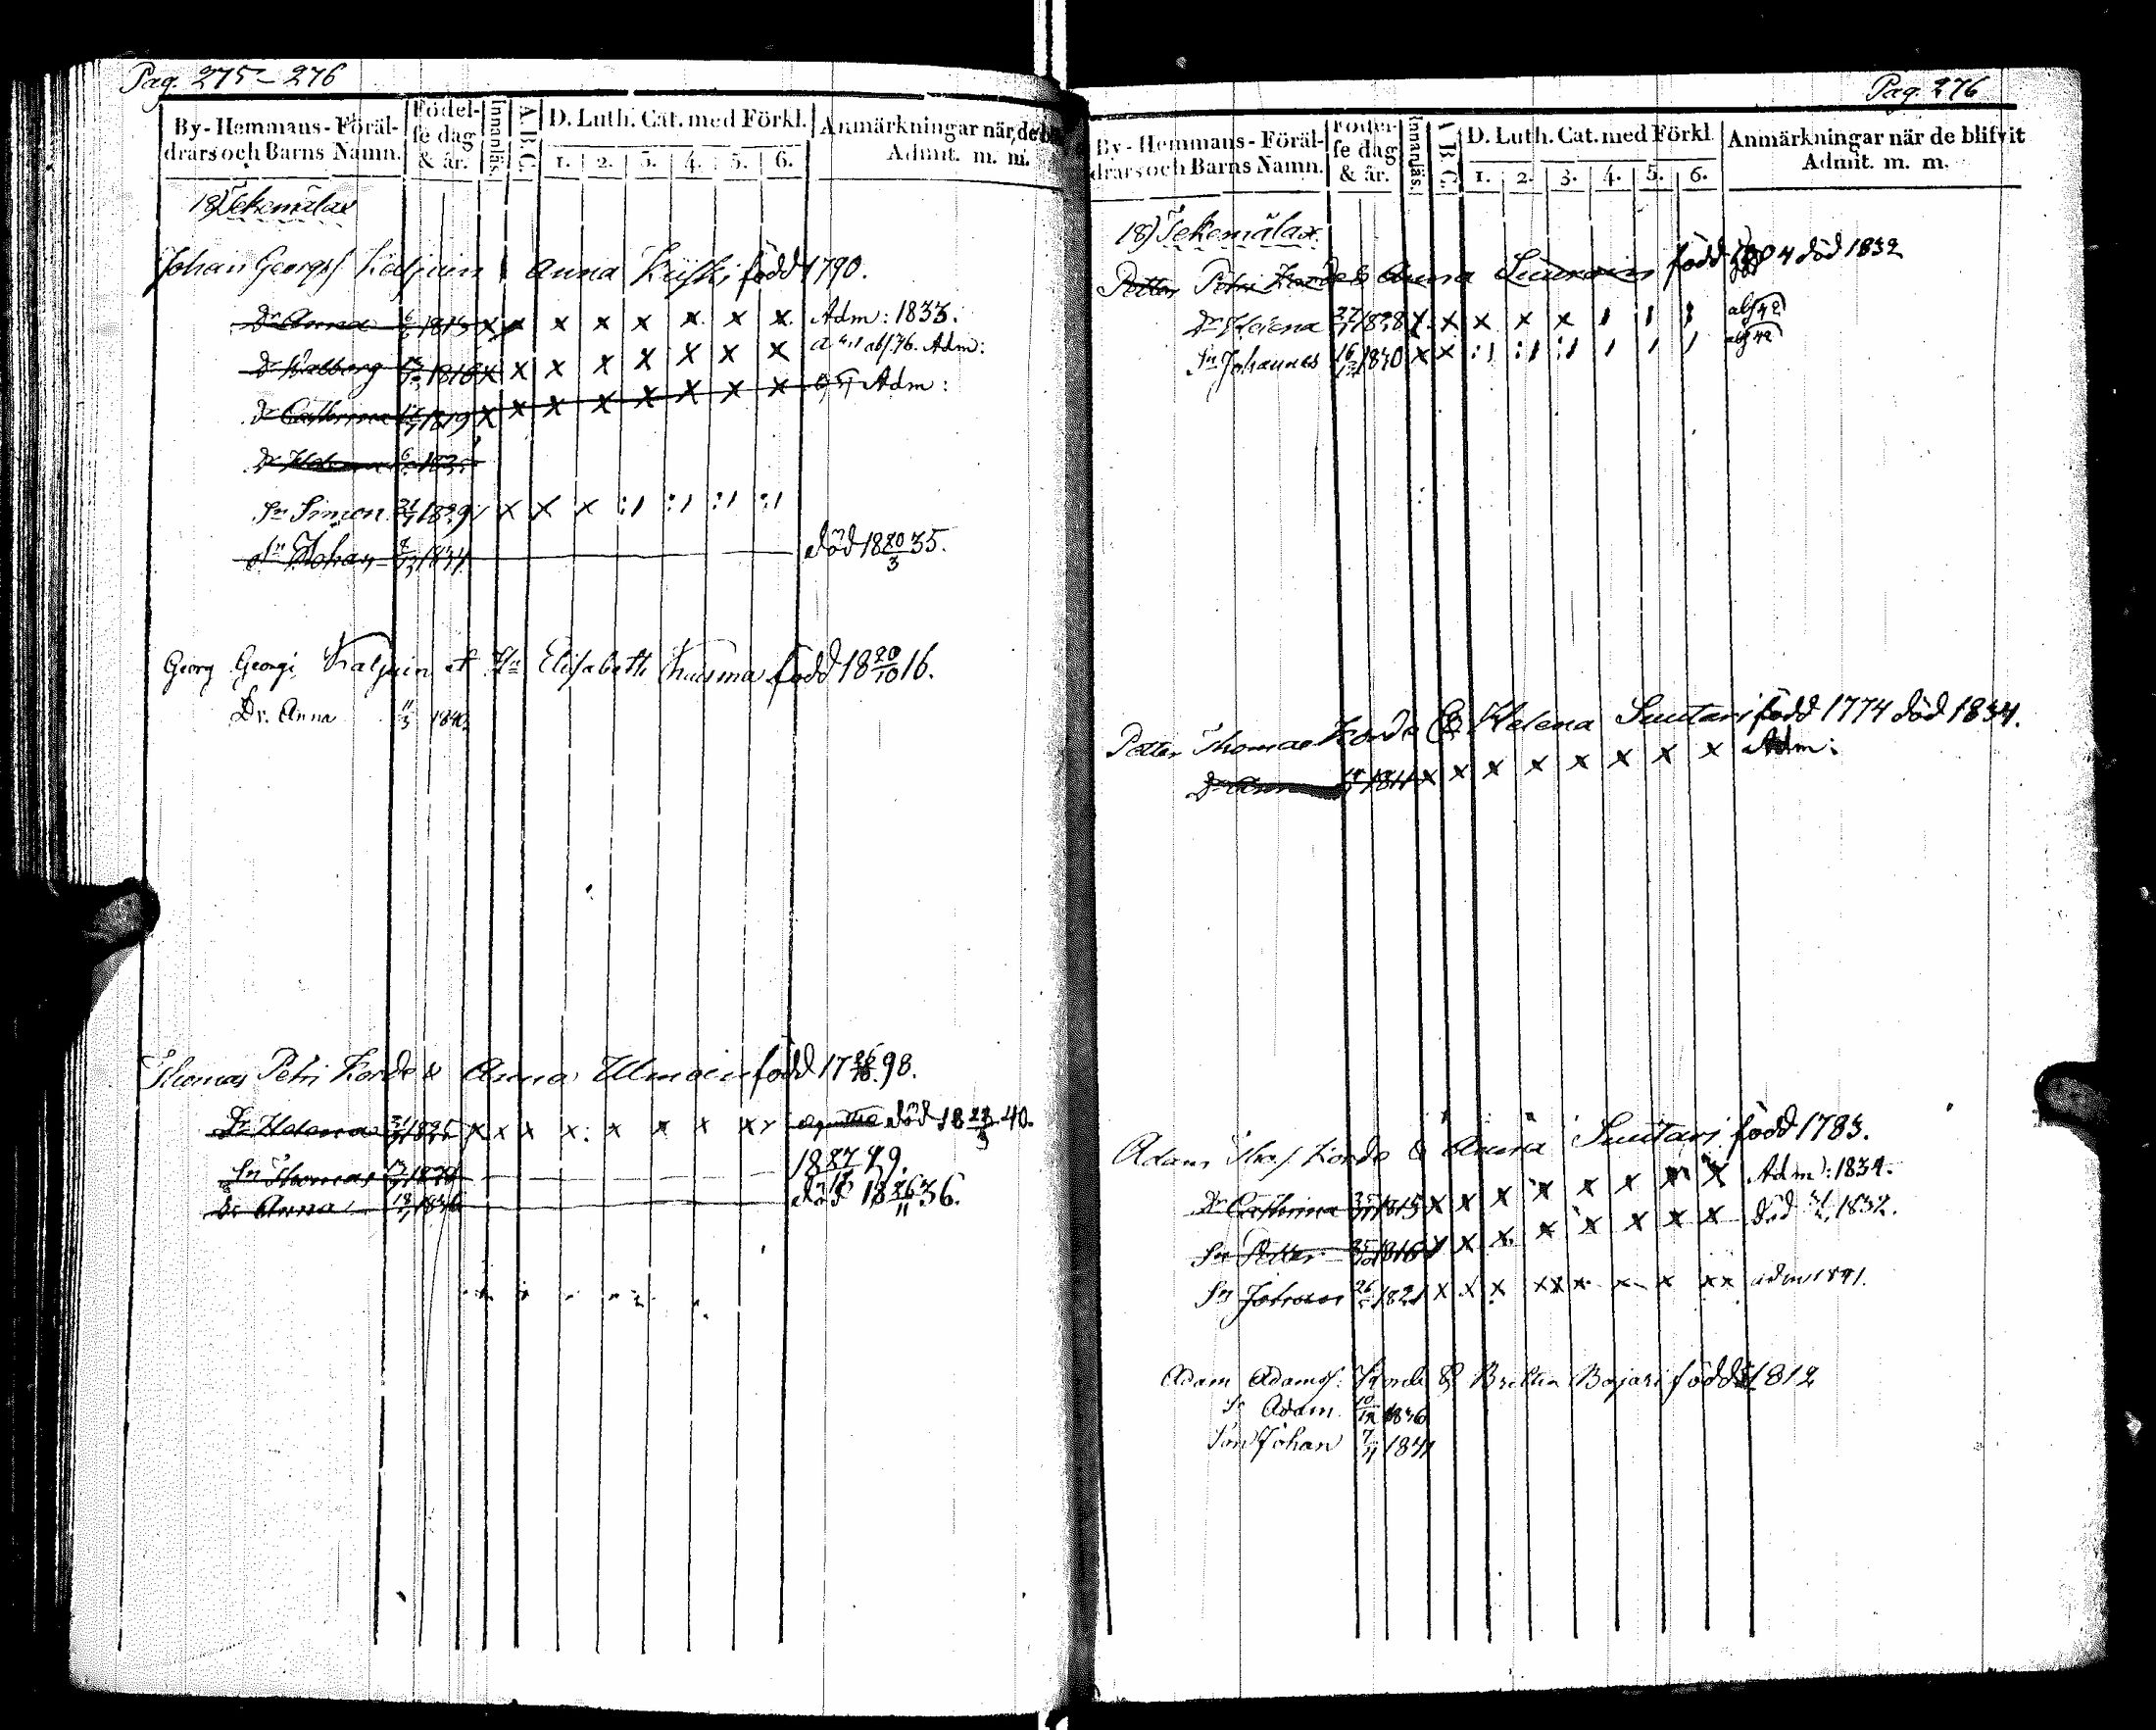 Pag. 275-276
By-Hemmans-Föräl-
drars och Barns Namn.
Födel-
se dag
& år.
Innanläs.
A.B.C.
D. Luth. Cat. med Förkl.
1. 2. 3. 4. 5. 6.
Anmärkningar när de
Admit. m. m.
18) Tekemälax
Johan Georgs. Kaljuin & Anna Kuski född 1790.
Dr Anna 1813 x x x x x x x x Adm: 1833.
Dr Walborg 1816 x x x x x x x x Adm:
Dr Cathrina 1819 x x x x x x x x Adm:
Dr Helena
Sn Simon 1829 x x x :/ :/ :/ :/
Sn Johan 1834 död 18 20/3 35.
Georg Georgi Kaljuin et Hu Elisabeth Kuisma född 18 20/10 16.
Dr. Anna 11/3 1840.
Thomas Petri Korde & Anna Ulmain född 17 98.
Dr Helena 1825 x x x x x x x x död 18 40.
Sn Thomas
Dr Anna 18 1836 död 18 26/11 36.
Pag. 276
By-Hemmans-Föräl-
drars och Barns Namn.
Födel-
se dag
& år.
Innanläs.
A B C.
D. Luth. Cat. med Förkl.
1. 2. 3. 4. 5. 6.
Anmärkningar när de blifvit
Admit. m. m.
18) Tekemälax.
Petter Petri Korde & Anna född 1804 död 1832
Dr Helena 1828 x x x x x / / /
Sn Johannes 1830 x x :/ :/ :/ / / /
Petter Thomae Korde & Helena Suutari född 1774 död 1834.
Dr Anna 1811 x x x x x x x x Adm:
Adam Thos. Korde & Anna Suutari född 1783.
Dr Cathrina 1815 x x x x x x x x Adm: 1834.
Sn Petter 1816 x x x x x x x död 1832.
Sn Johan 26 1821 x x x xx x x x xx adm 1841.
Adam Adams. Korde & Britta Bojari född 1812
Sn Adam 10/12 1836
Son Johan 7 1841